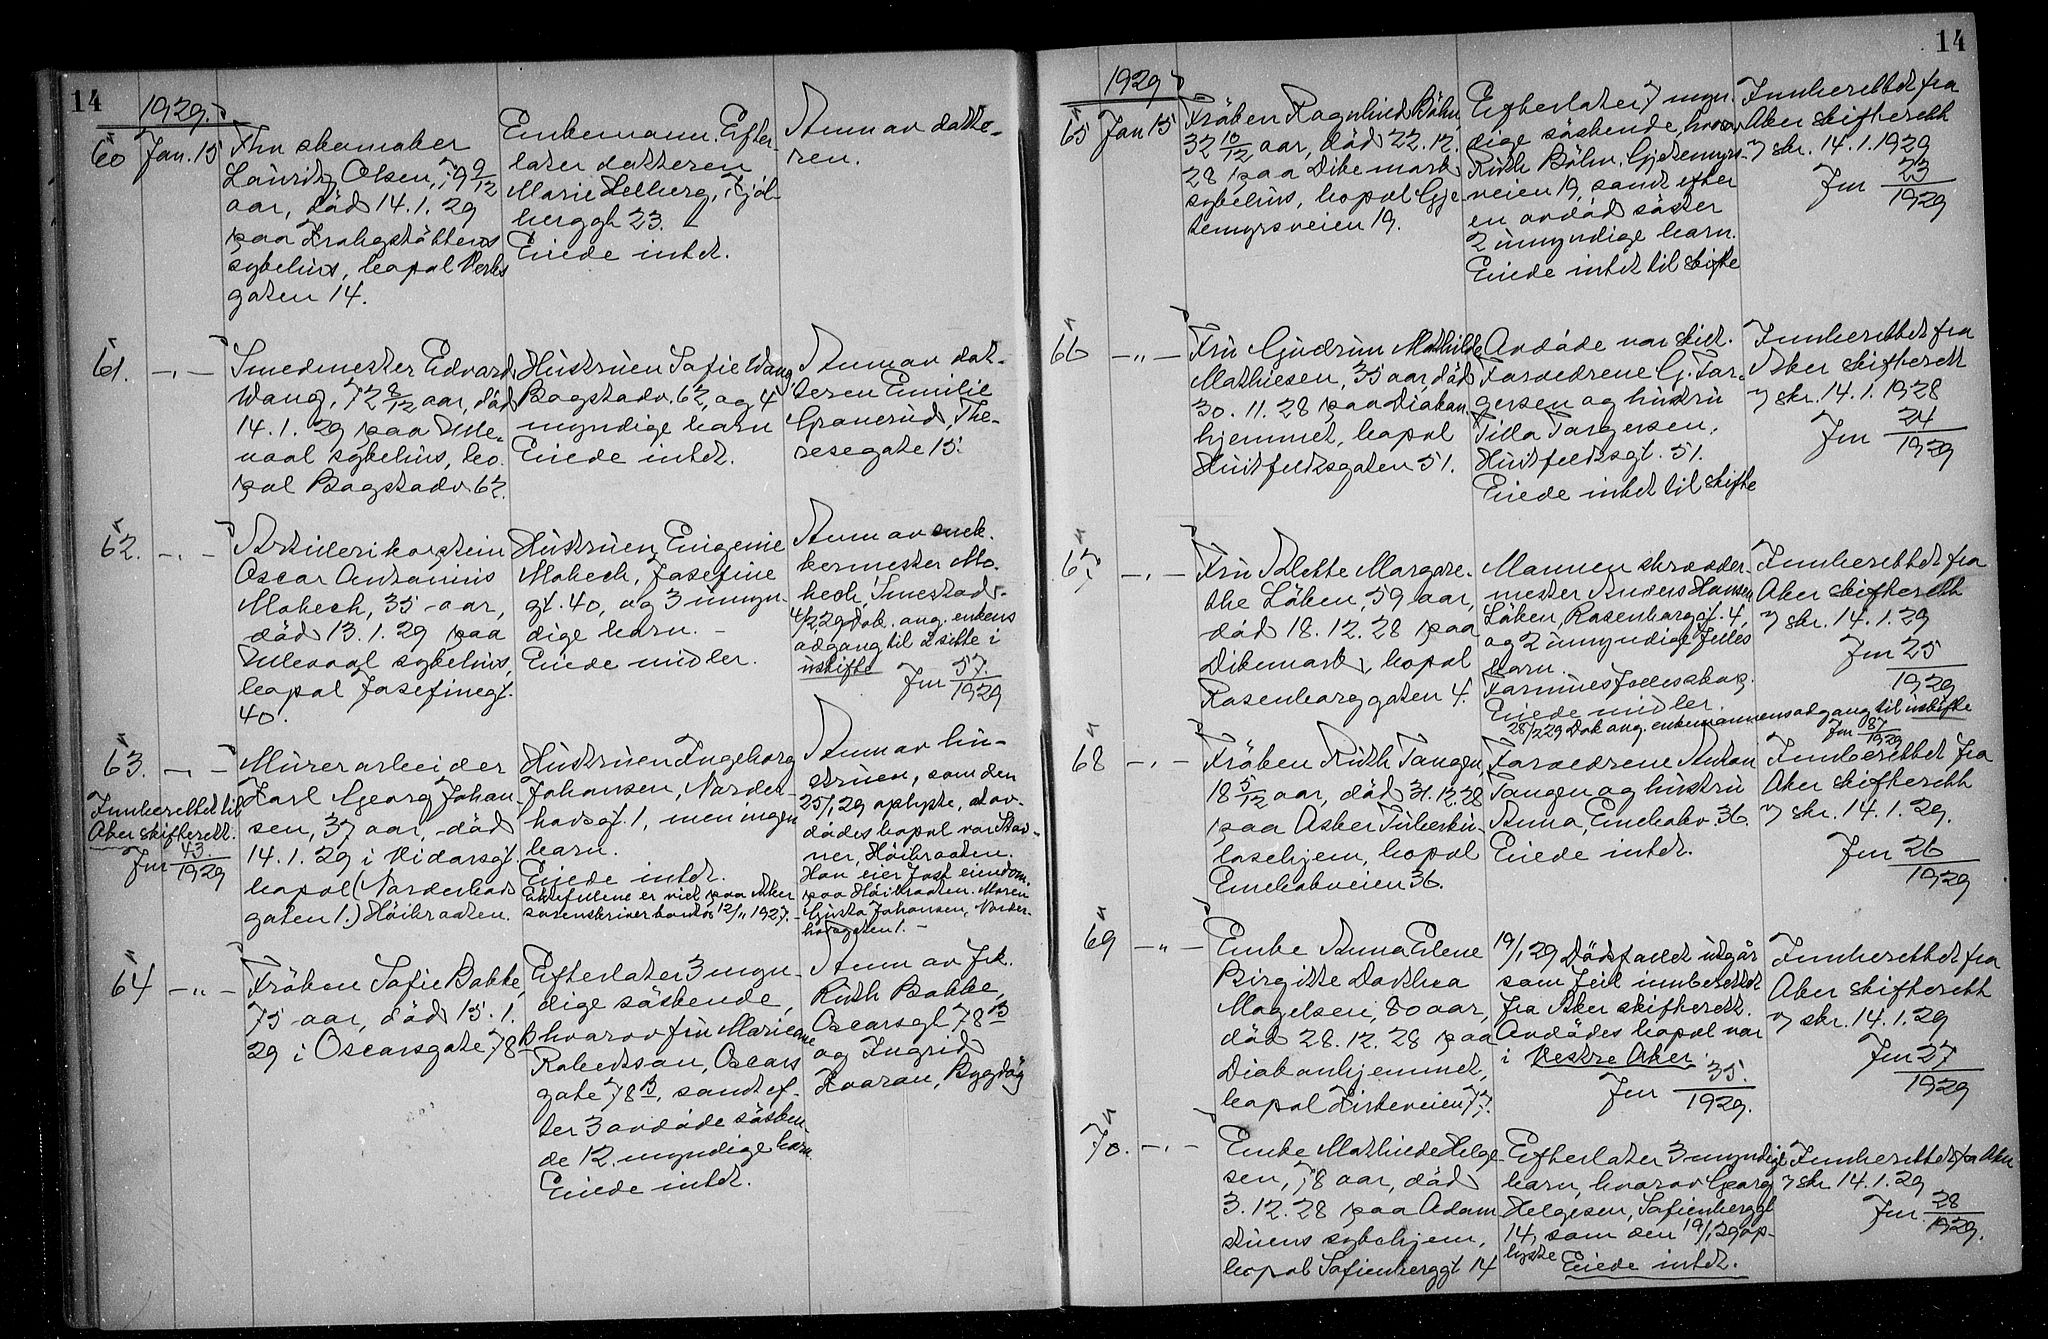 14
1929.
60
Jan. 15
Fhv skomaker
Lauritz Olsen, 79 9/12
aar, död 14. 1. 29
paa Krohgstöttens
sykehus, bopæl Verks
gaten 14.
Enkemann. Efter
later datteren
Marie Helberg,
berggt 23.
Eiede intet.
Anm av datte-
ren.
61.
-"-
Smedmester Edvard
Wang, 72 8/12 aar, död
14. 1. 29 paa Ulle-
vaal sykehus, bo
pæl Bogstadv. 62.
Hustruen Sofie Wang
Bogstadv. 62, og 4
myndige barn
Eiede intet.
Anm av dat-
teren Emilie
Granerud, The-
resegate 15.
62.
-"-
Artillerikaptein
Oscar Antonius
Mobech, 35 aar,
död 13. 1. 29 paa
Ullevaal sykehus,
bopæl Josefinegt.
40.
Hustruen Eugenie
Mobech, Josefine
gt. 40, og 3 umyn-
dige barn. -
Eiede midler.
Anm av snek-
kermester Mo-
bech, Smestad.
4/2 29 Dok. ang. enkens
adgang til å sitte i
uskifte
Jnr 57/1929
63.
-"-
Innberettet til
Aker skifterett.
Jnr 43./1929
Murerarbeider
Karl Georg Johan-
sen, 37 aar, död
14. 1. 29 i Vidarsgt.
bopæl (Norderhovs
gaten 1.) Höibraaten.
Hustruen Ingeborg
Johansen, Norder-
hovsgt. 1, men ingen
barn.
Eiede intet.
Ektefellene er viet paa Aker
sorenskriverkontor 12/11 1927. -
Anm av hu-
struen, som den
25/1 29 oplyste, at av-
dödes bopæl var Stov-
ner, Höibraaten.
Han eier fast eiendom
paa Höibraaten. Maren
Gusta Johansen, Norder-
hovsgaten 1. -
64
-"-
Fröken Sofie Bakke,
75 aar, död 15. 1.
29 i Oscarsgate 78 B
Efterlater 3 myn-
dige söskende,
hvorav fru Marianne
Robertson, Oscars
gate 78 B, samt ef-
ter 3 avdöde sösken-
de 12 myndige barn
Eiede intet.
Anm av frk.
Ruth Bakke,
Oscarsgt 78 B
og Ingrid
Kvaran, Bygdöy
14
1929
65
Jan 15
Fröken Ragnhild Böhn,
32 10/12 aar, död 22. 12.
28 paa Dikemark
sykehus, bopæl Gje-
temyrsveien 19.
Efterlater 7 myn-
dige söskende, hvorav
Ruth Böhn, Gjetemyrs-
veien 19, samt efter
en avdöd söster
2 umyndige barn.
Eiede intet til skifte
Innberettet fra
Aker skifterett
i skr. 14. 1. 1929
Jnr 23/1929
66
-"-
Fru Gudrun Mathilde
Mathiesen, 35 aar, död
30. 11. 28 paa Diakon
hjemmet, bopæl
Huitfeldtsgaten 51.
Avdöde var skilt.
Forældrene G. Tor-
gersen og hustru
Tilla Torgersen,
Huitfeldtsgt. 51.
Eiede intet til skifte
Innberettet fra
Aker skifterett
i skr. 14. 1. 1928
Jnr 24/1929
67
-"-
Fru Valette Margre-
the Löken, 59 aar,
död 18. 12. 28 paa
Dikemark, bopæl
Rosenborggaten 4.
Mannen skrædder-
mester Anders Hansen
Löken, Rosenborggt. 4,
og 2 umyndige felles
barn.
Formuesfellesskap.
Eiede midler.
28/2 29 Dok ang. enkemannens adgang til uskifte
Jnr 87/1929
Innberettet fra
Aker skifterett
i skr. 14. 1. 29
Jnr 25/1929
68
-"-
Fröken Ruth Tangen,
18 5/12 aar, död 31. 12. 28
paa Asker Tuberku-
losehjem, bopæl
Enebakveien 36.
Forældrene Anton
Tangen og hustru
Anna, Enebakv. 36.
Eiede intet.
Innberettet fra
Aker skifterett
i skr. 14. 1. 29.
Jnr 26/1929
69
-"-
Enke Anna Elene
Birgitte Dorthea
Magelsen, 80 aar,
död 28. 12. 28 paa
Diakonhjemmet,
bopæl Kirkeveien 77.
19/1 29 Dödsfallet utgår
som feil innberettet
fra Aker skifterett.
Avdödes bopæl var
i Vestre Aker.
Jnr 35./1929.
Innberettet fra
Aker skifterett
i skr. 14. 1. 29
Jnr 27/1929
70.
-"-
Enke Mathilde Helge-
sen, 78 aar, död
3. 12. 28 paa Adam
stuens sykehjem,
bopæl Sofienberggt 14
Efterlater 3 myndige
barn, hvorav Georg
Helgesen, Sofienberggt
14, som den 19/1 29 op-
lyste
Eiede intet.
Innberettet fra Aker
i skr. 14. 1. 29
Jnr 28/1929.